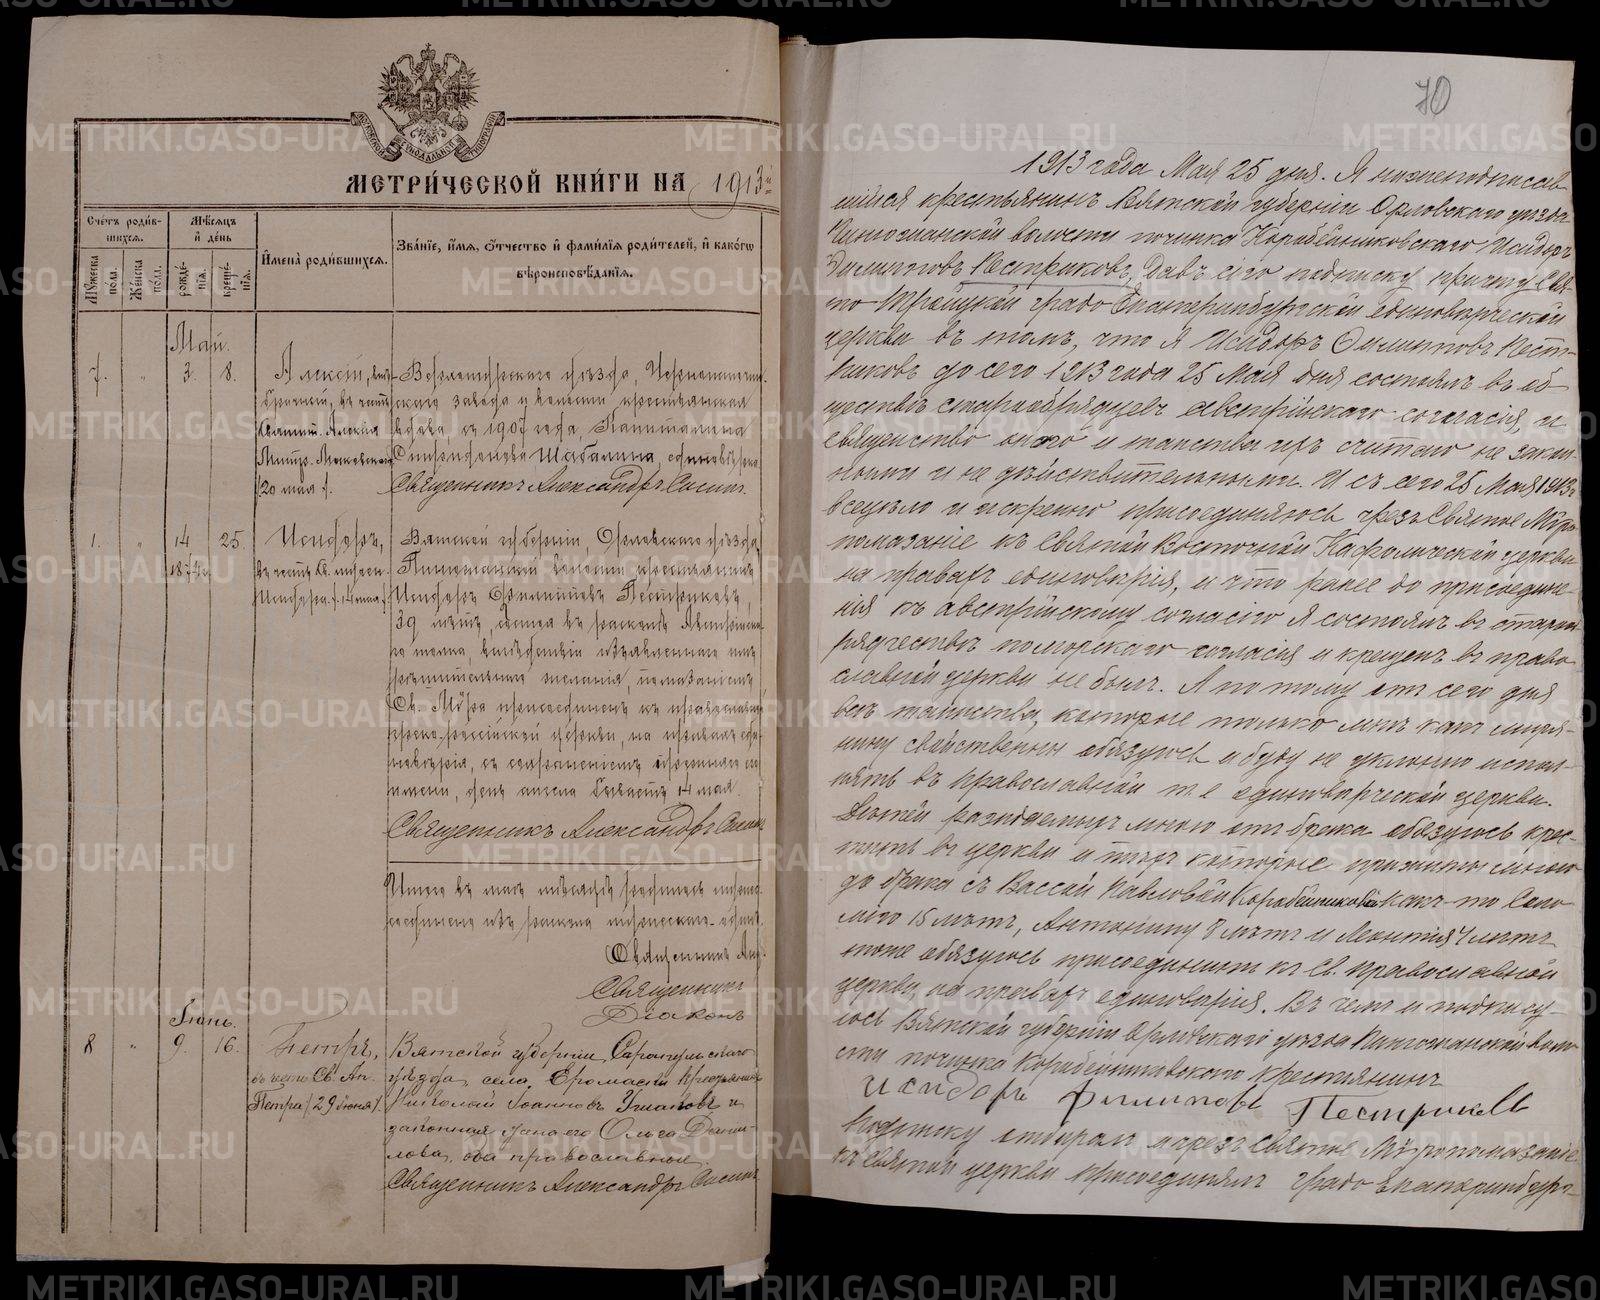 МЕТРИ́ЧЕСКОЙ КНИ́ГИ НА 1913й
Сче́тъ роди́вшихся.
Мѣ́сяцъ и҆ де́нь
Мꙋ́жеска по́ла.
Же́нска по́ла.
рожде́нїѧ.
креще́нїѧ.
И҆мена̀ роди́вшихся.
Зва́нїе, и҆́мѧ, ѻ҆́тчество и҆ фами́лїѧ роди́телей, и҆ како́гѡ
вѣроисповѣ́данїѧ.
Май.
7. " 3. 8.
Алексій,
въ честь
Святит. Алексія
Митр. Московскаго
/20 мая/.
Верхотурскаго уѣзда,
скаго завода и волости крестьянская
вдова, съ 1907 года, Капитолина
Спиридонова Шабалина, единовѣрка
Священникъ Александръ Сосин
1. " 14 25.
1874
Исидоръ,
въ честь Св. мучен.
Исидора /14 мая/.
Вятской губерніи, Орловскаго уѣзда,
Пинюжанской волости крестьянинъ
Исидоръ Филипповъ Пестриковъ,
39 лѣтъ, состоя въ расколѣ Австрійска-
го толка, вслѣдствіи изъявленнаго имъ
желанія, помазаніемъ
Св. Мѵра присоединенъ къ православной
греко-россійской церкви, на правахъ еди-
новѣрія, съ сохраненіемъ прежняго
имени, день ангела бываетъ 14 мая.
Священникъ Александръ Сосин
Итого въ маѣ мѣсяцѣ родилось
Священникъ
Священникъ
Діаконъ
Іюнь.
8 " 9. 16.
Петръ,
въ честь Св. Ап.
Петра /29 іюня/.
Вятской губерніи, Сарапульскаго
уѣзда, села крестьянинъ
Николай Іоанновъ Ушаковъ и
законная жена его Ольга Дани-
лова, оба православные
Священникъ Александръ Сосин
70
1913 года Мая 25 дня. Я нижеподписав-
шійся крестьянинъ Вятской губерніи Орловскаго уѣзда
Пинюжанской волости починка Коробейниковскаго Исидоръ
Филипповъ Пестриковъ, давъ сію подписку причту Свя-
то-Троицкой градо Екатеринбургской единовѣрческой
церкви въ томъ, что я Исидоръ Филипповъ Пест-
риковъ до сего 1913 года 25 Мая дня состоялъ въ об-
ществѣ старообрядцевъ австрійскаго согласія, и
священство онаго и таинства ихъ считаю не закон-
ными и не дѣйствительными. И съ сего 25 Мая 1913 г
всецѣло и искренно присоединяюсь чрезъ Святое Мѵро-
помазаніе къ Святой Восточной Каѳолической церкви
на правахъ единовѣрія, и что ранее до присоедине-
нія къ австрійскому согласію я состоялъ въ староо
рядчествѣ поморскаго согласія и крещенъ въ право
славной церкви не былъ. А по тому отъ сего дня
всѣ таинства, которые только мнѣ какъ миря-
нину свойственны обязуюсь и буду не уклонно испол-
нять въ православной т. е единовѣрческой церкви.
Дѣтей раждаемыхъ мною отъ брака обязуюсь крес-
тить въ церкви и тѣхъ которые прижиты мною
до брака съ Вассой Павловой Коробейниковой какъ-то Сало
15 лѣтъ, Антонину 8 лѣтъ и Леонтія 4 лѣтъ
тоже обязуюсь присоединить къ Св. православной
церкви на правахъ единовѣрія. Въ чемъ и подпису-
юсь Вятской губерніи Орловскаго уѣзда Пинюжанской воло
сти починка Коробейниковскаго крестьянинъ
Исидоръ Филиповъ Пестриковъ
Подписку отбиралъ и чрезъ Святое Мѵропомазаніе
къ Святой церкви присоединялъ градо Екатеринбург-
METRIKI.GASO-URAL.RU